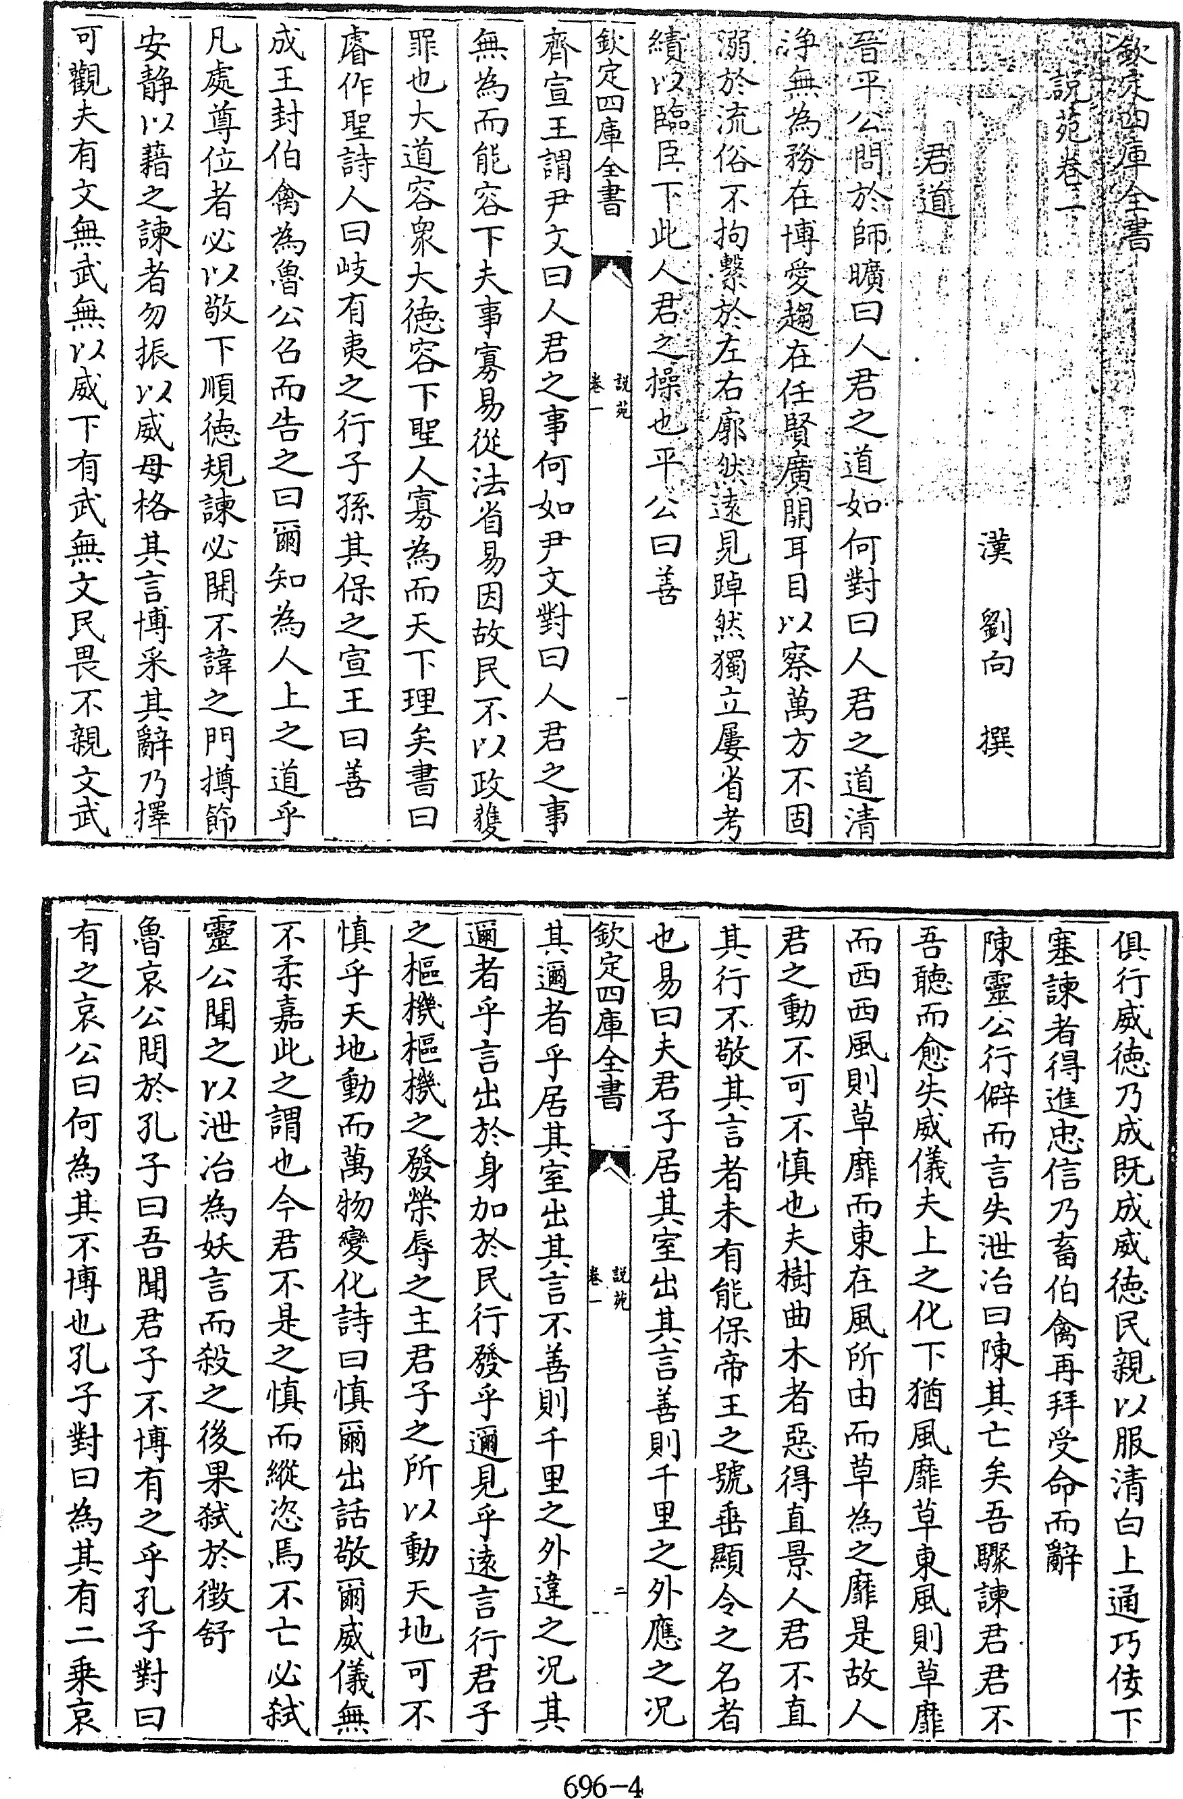 欽定四庫全書
說苑卷一
漢 劉向 撰
君道
晉平公問於師曠曰人君之道如何對曰人君之道清
淨無為務在博愛趨在任賢廣開耳目以察萬方不固
溺於流俗不拘繫於左右廓然遠見踔然獨立屢省考
績以臨臣下此人君之操也平公曰善
欽定四庫全書 說苑 卷一 一
齊宣王謂尹文曰人君之事何如尹文對曰人君之事
無為而能容下夫事寡易從法省易因故民不以政獲
罪也大道容衆大德容下聖人寡為而天下理矣書曰
睿作聖詩人曰岐有夷之行子孫其保之宣王曰善
成王封伯禽為魯公召而告之曰爾知為人上之道乎
凡處尊位者必以敬下順德規諫必開不諱之門撙節
安静以藉之諫者勿振以威毋格其言博采其辭乃擇
可觀夫有文無武無以威下有武無文民畏不親文武
俱行威德乃成既成威德民親以服清白上通巧佞下
塞諫者得進忠信乃畜伯禽再拜受命而辭
陳靈公行僻而言失泄冶曰陳其亡矣吾驟諫君君不
吾聽而愈失威儀夫上之化下猶風靡草東風則草靡
而西西風則草靡而東在風所由而草為之靡是故人
君之動不可不慎也夫樹曲木者惡得直景人君不直
其行不敬其言者未有能保帝王之號垂顯令之名者
也易曰夫君子居其室出其言善則千里之外應之況
欽定四庫全書 說苑 卷一 二
其邇者乎居其室出其言不善則千里之外違之况其
邇者乎言出於身加於民行發乎邇見乎遠言行君子
之樞機樞機之發榮辱之主君子之所以動天地可不
慎乎天地動而萬物變化詩曰慎爾出話敬爾威儀無
不柔嘉此之謂也今君不是之慎而縱恣焉不亡必弑
靈公聞之以泄冶為妖言而殺之後果弑於徵舒
魯哀公問於孔子曰吾聞君子不博有之乎孔子對曰
有之哀公曰何為其不博也孔子對曰為其有二乗哀
696-4